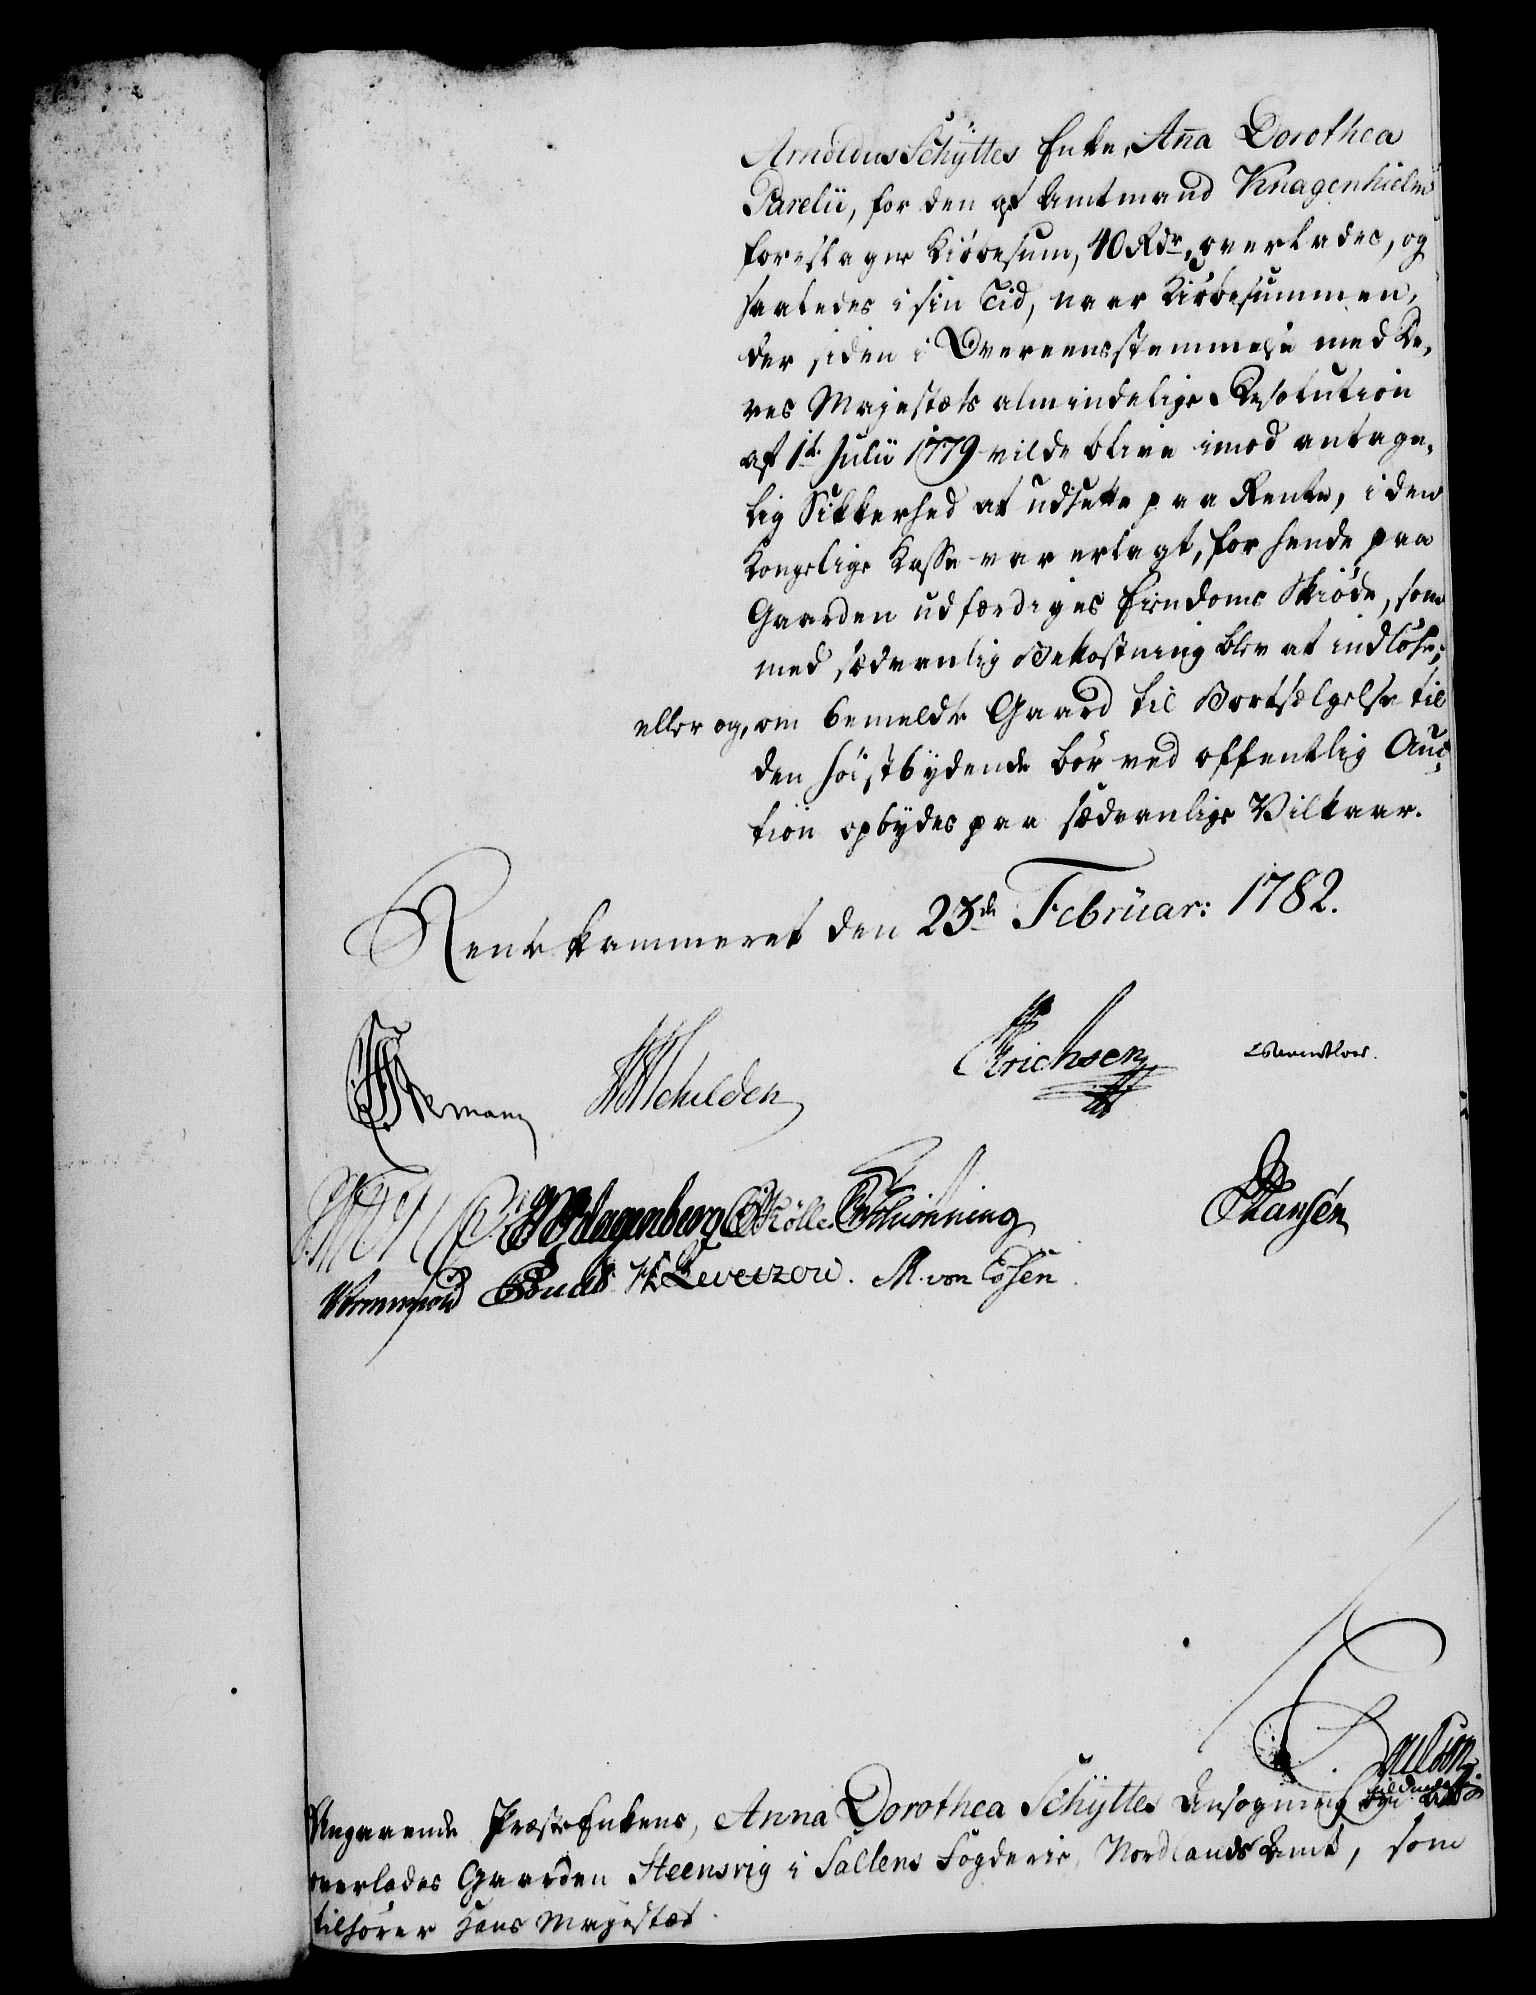 Arnoldus Schÿttes Enke, Aña Dorothea
Parelii, for den af Amtmand Knagenhielm
foreslagne Kiöbesum, 40 Rdr, overlades, og
saaledes i sin Tid, naar Kiöbesummen,
der siden i Overeensstemmelse med De,
res Majestæts almindelige Resolution
af 1t Julii 1779 vilde blive imod antage,
lig Sikkerhed at udsette paa Rente, i den
Kongelige Kasse var erlagt, for hende paa
Gaarden udfærdiges Eiendoms Skiöde, som
med sædvanlig Bekostning blev at indlöse;
eller og, om bemeldte Gaard til Bortsælgelse til
den höistbydende bör ved offentlig Auc,
tion opbydes paa sædvanlige Vilkaar.
Rentekammeret den 23de Februar: 1782.
Schilden Erichsen
Klagenberg Möller Schiönning Hansen
Wormskiold Levetzow. M. von Essen.
Angaaende PræsteEnkens, Anna Dorothea Schÿttes Ansögning
overlades Gaarden Steensvig i Saltens Fogderie, Nordlands Amt, som
tilhörer Hans Majestæt.